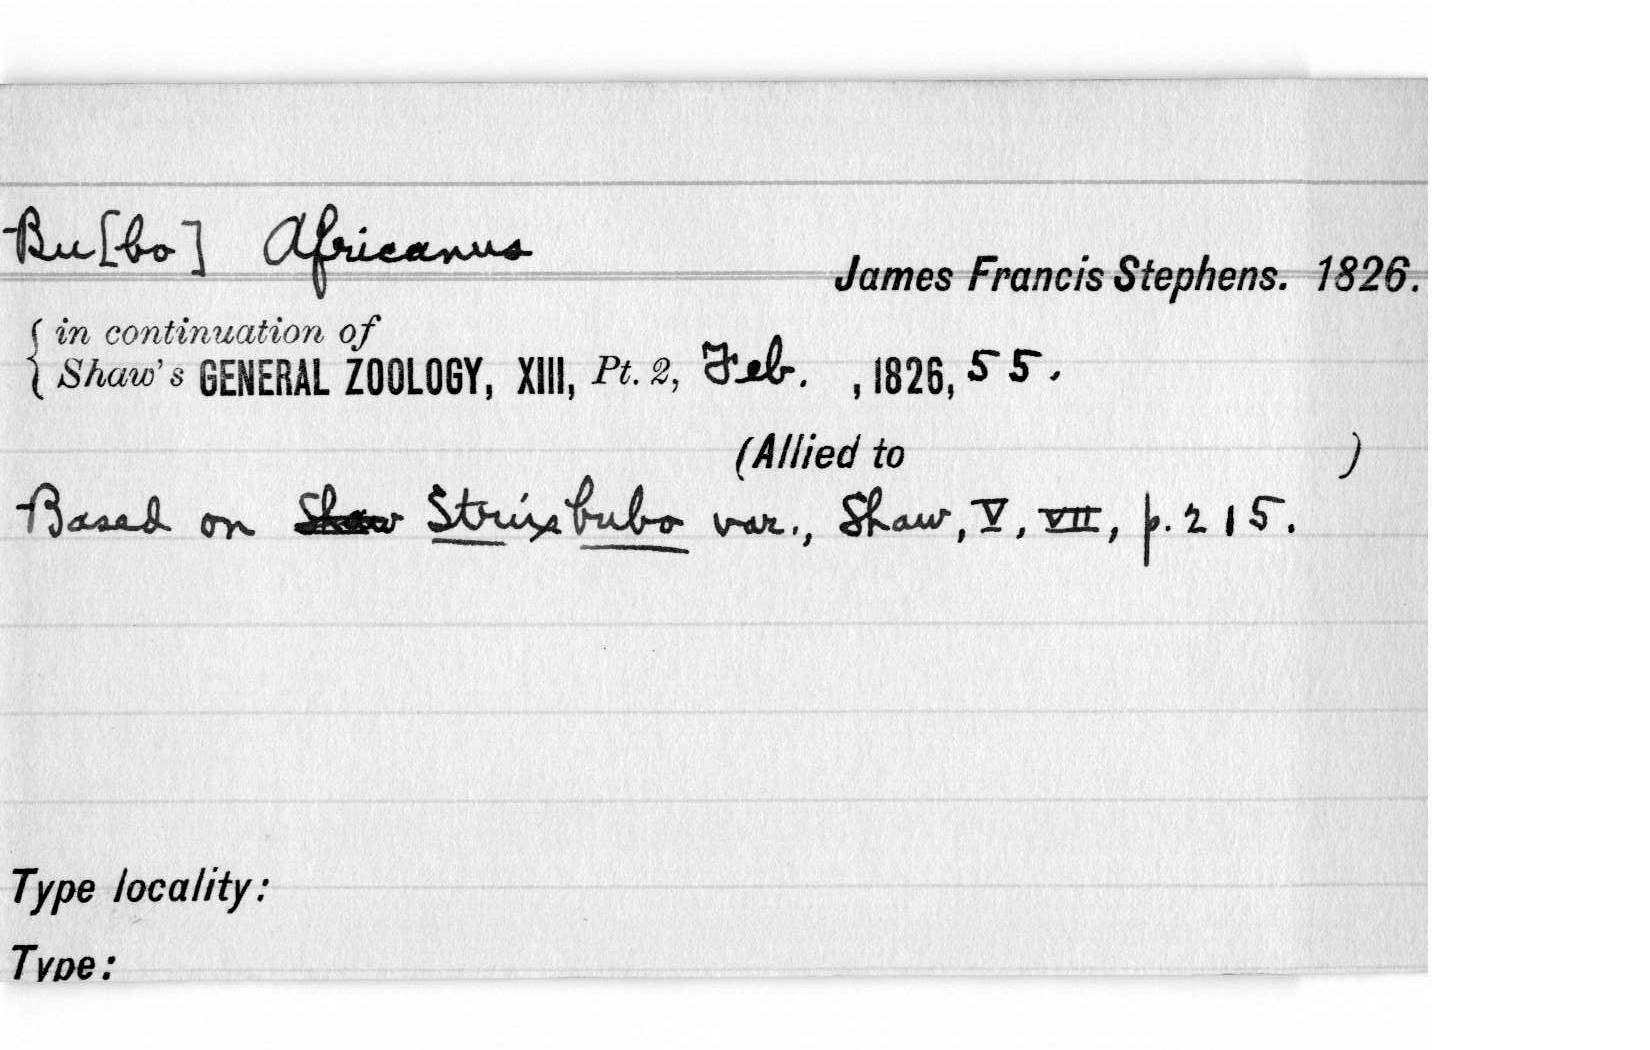 Bu[bo] Africanus
James Francis Stephens. 1826.
in continuation of
Shaw's GENERAL ZOOLOGY, XIII, Pt. 2, Feb. , 1826, 55.
(Allied to )
Based on Shaw Strix bubo var., Shaw, V, VII, p. 215.
Type locality:
Type: